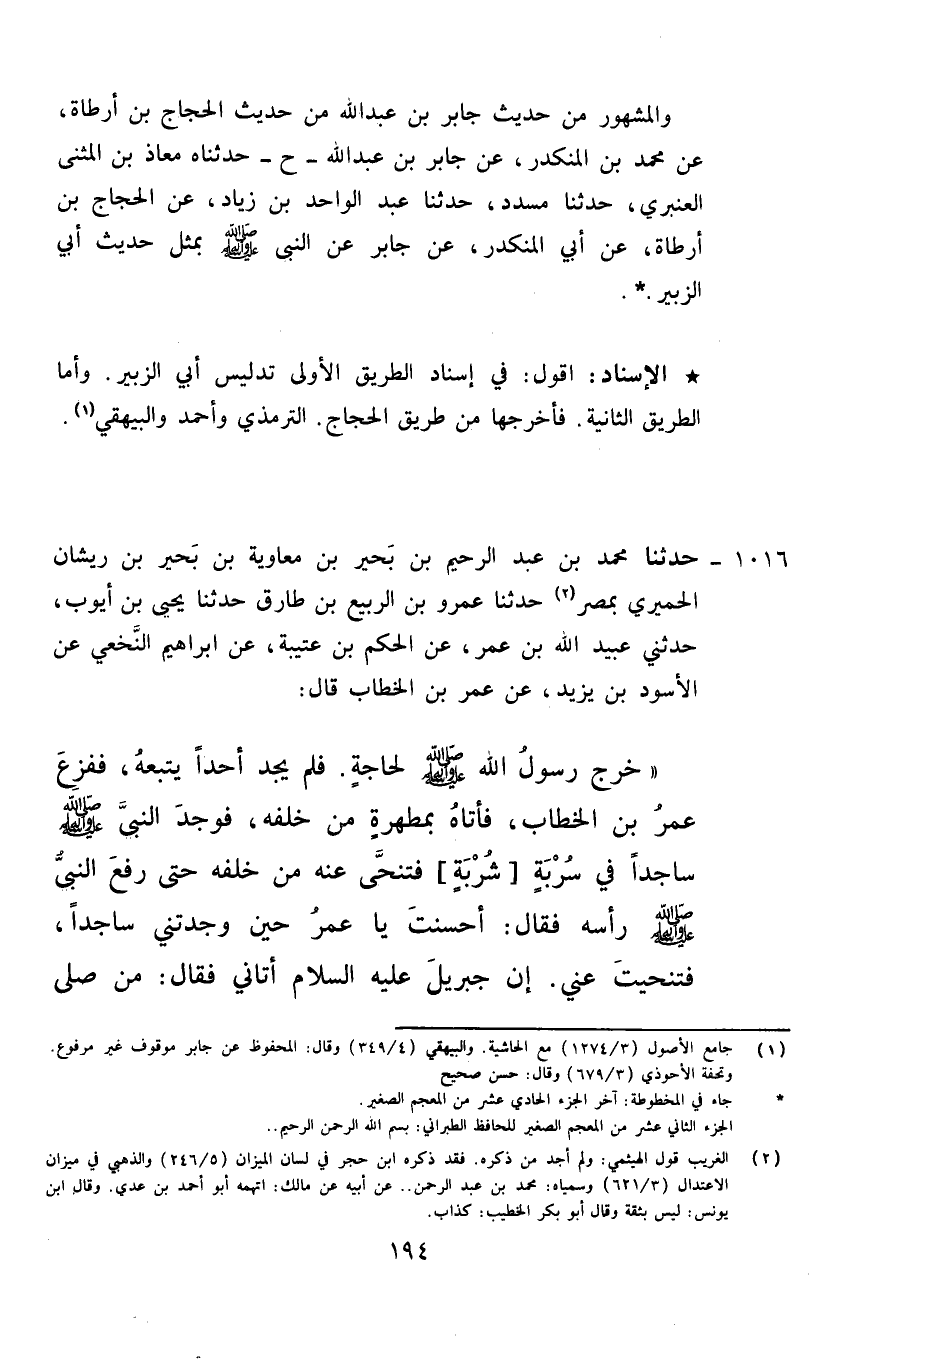 والمشهور من حديث جابر بن عبدالله من حديث الحجاج بن أرطاة،
عن محمد بن المنكدر، عن جابر بن عبدالله ـ ح ـ حدثناه معاذ بن المثنى
العنبري، حدثنا مسدد، حدثنا عبد الواحد بن زياد، عن الحجاج بن
أرطاة، عن أبي المنكدر، عن جابر عن النبى ﷺ بمثل حديث أبي
الزبير .* .
★ الإسناد: اقول: في إسناد الطريق الأولى تدليس أبي الزبير. وأما
الطريق الثانية. فأخرجها من طريق الحجاج. الترمذي وأحمد والبيهقي(١).
١٠١٦ ـ حدثنا محمد بن عبد الرحيم بن بَحير بن معاوية بن بَحير بن ريشان
الحميري بمصر(٢) حدثنا عمرو بن الربيع بن طارق حدثنا يحيى بن أيوب،
حدثني عبيد الله بن عمر، عن الحكم بن عتيبة، عن ابراهيم النَّخعي عن
الأسود بن يزيد، عن عمر بن الخطاب قال:
« خرج رسولُ الله ﷺ لحاجةٍ. فلم يجد أحداً يتبعهُ، ففزعَ
عمرُ بن الخطاب، فأتاهُ بمطهرةٍ من خلفه، فوجدَ النبيَّ ﷺ
ساجداً في سُرْبَةٍ [شُرْبَةٍ] فتنحَّى عنه من خلفه حتى رفعَ النبيُّ
ﷺ رأسه فقال: أحسنتَ يا عمرُ حين وجدتني ساجداً،
فتنحيتَ عني. إن جبريلَ عليه السلام أتاني فقال: من صلى
(١) جامع الأصول (١٢٧٤/٣) مع الحاشية. والبيهقي (٣٤٩/٤) وقال: المحفوظ عن جابر موقوف غير مرفوع.
وتحفة الأحوذي (٦٧٩/٣) وقال: حسن صحيح
* جاء في المخطوطة: آخر الجزء الحادي عشر من المعجم الصغير.
الجزء الثاني عشر من المعجم الصغير للحافظ الطبراني: بسم الله الرحمن الرحيم..
(٢) الغريب قول الهيثمي: ولم أجد من ذكره. فقد ذكره ابن حجر في لسان الميزان (٢٤٦/٥) والذهبي في ميزان
الاعتدال (٦٢١/٣) وسمياه: محمد بن عبد الرحمن.. عن أبيه عن مالك: اتهمه أبو أحمد بن عدي. وقال ابن
يونس: ليس بثقة وقال أبو بكر الخطيب: كذاب.
١٩٤